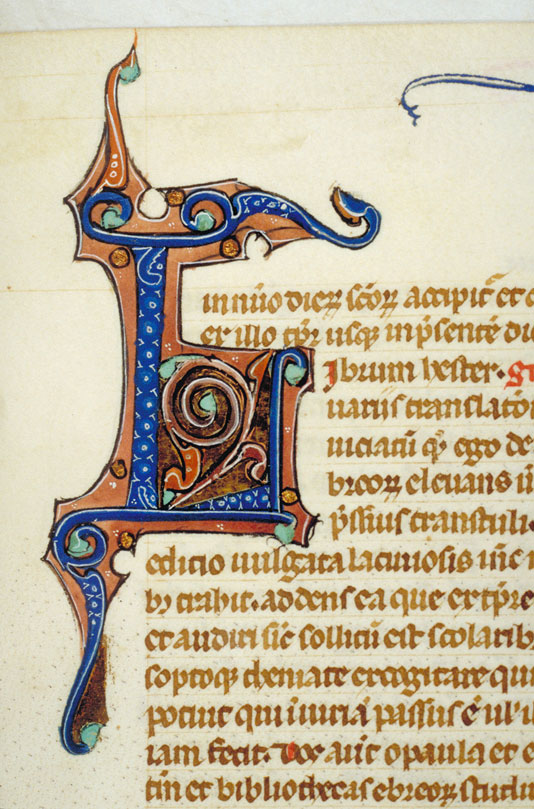 in nũo dierꝝ scõrꝝ accipit̃ et
ex illo tp̃r usqꝫ in p̃sentẽ die
L ibrum hester.
uariis translato
uiciatũ qꝫ ego de
breoꝝ eleuans
p̃ssius transtuli.
editio uulgata laciniosis
trahit. addens ea que ex tp̃re
et audiri sic̃ sollicitũ est scolarib
sopto qꝫ themate excogitare qui
potuit qui iniuriã passus ẽ ul'
iam fecit. Vox aut̃ o paula et e
tĩn et bibliothecas ebreoꝝ studui